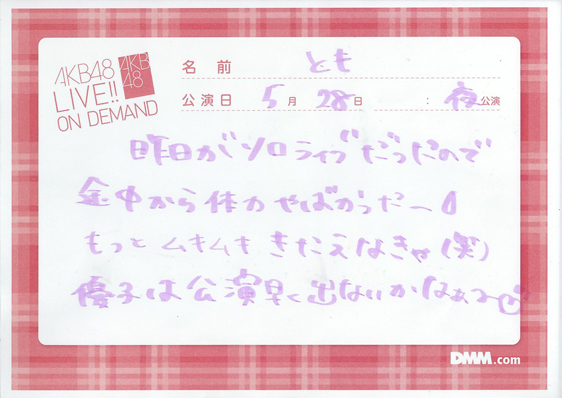 AKB48
LIVE!!
ON DEMAND
AKB
48
名前 とも
公演日 5月28日 : 夜公演
昨日がソロライブだったので
途中から体力やばかったー
もっとムキムキきたえなきゃ(笑)
優子は公演早く出ないかなぁー
DMM.com